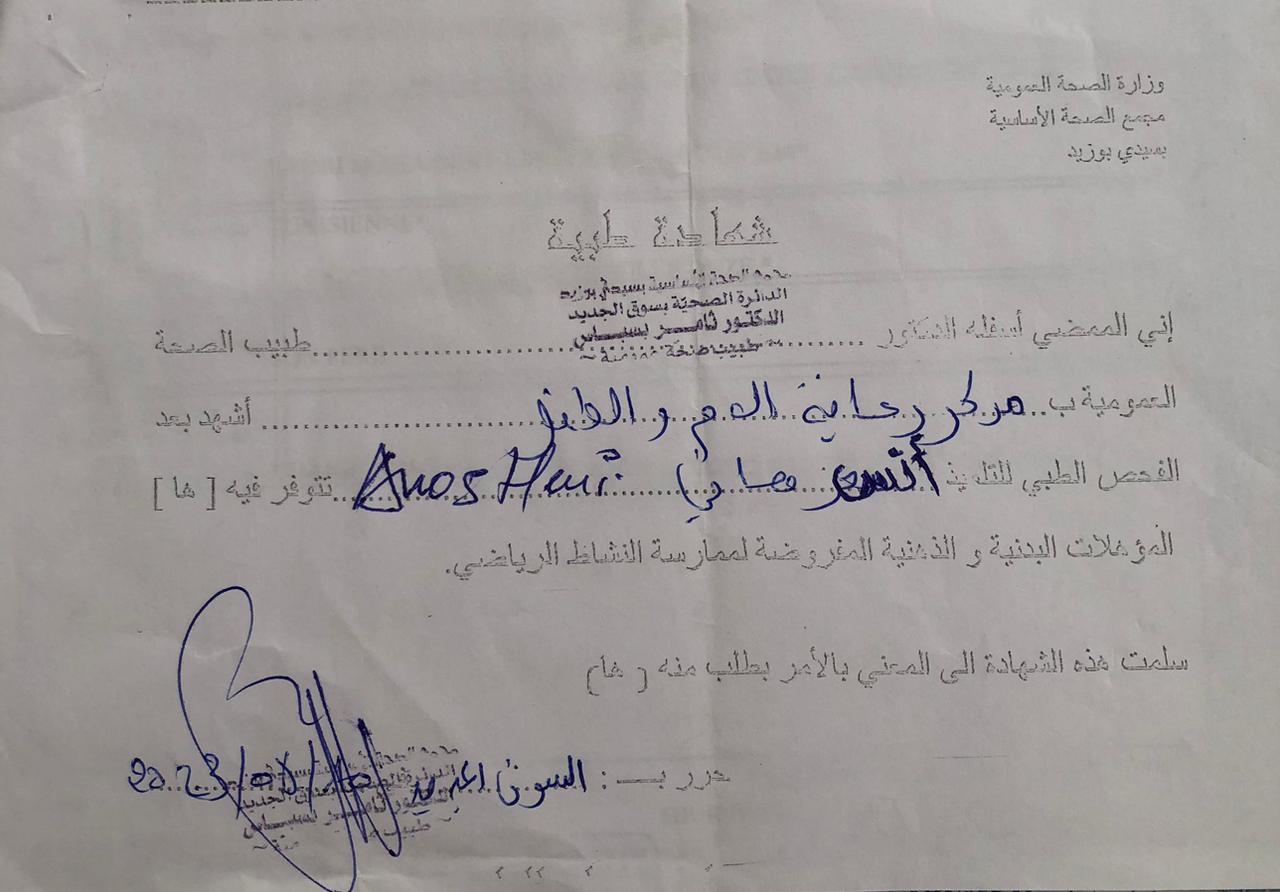 وزارة الصحة العمومية
مجمع الصحة الأساسية
بسيدي بوزيد
شهادة طبية
مجمع الصحة الأساسية بسيدي بوزيد
الدائرة الصحيّة بسوق الجديد
الدكتور ثامر بسباس
إني الممضي أسفله الدكتور .......................... طبيب الصحة
طبيب صحة عمومية
العمومية ب.. مركز رعاية الام و الطفل .................... أشهد بعد
الفحص الطبي للتلميذ أنس هاني Anos Heni تتوفر فيه [ ها ]
المؤهلات البدنية و الذهنية المفروضة لممارسة النشاط الرياضي.
سلمت هذه الشهادة الى المعني بالأمر بطلب منه ( ها)
حرر بـ : السوق الجديد 2023